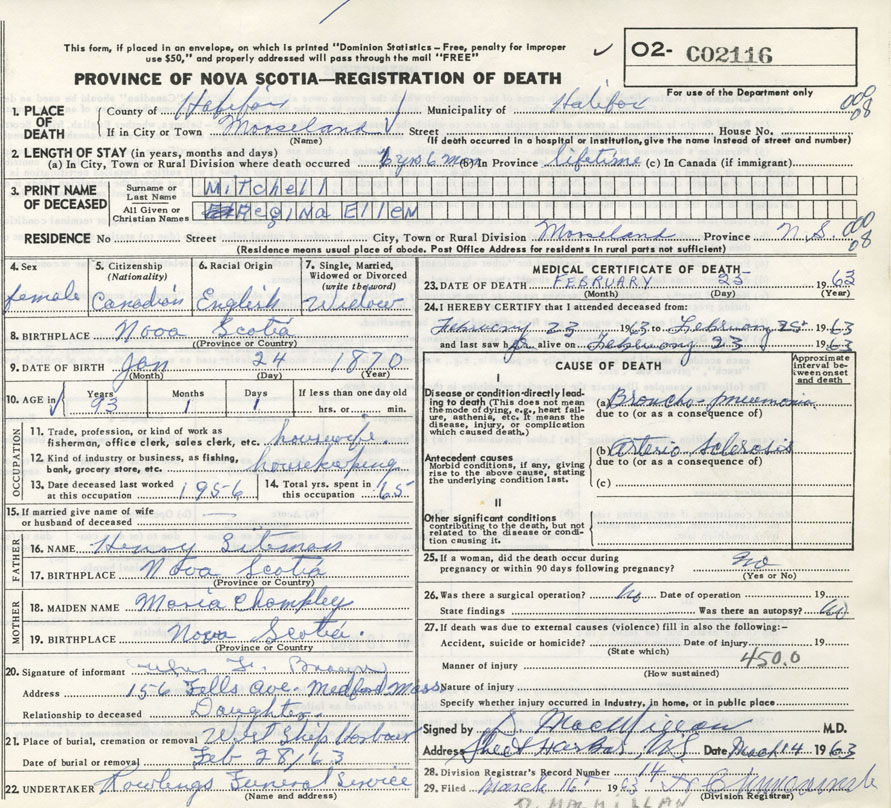 This form, if placed in an envelope, on which is printed "Dominion Statistics – Free, penalty for improper
use $50," and properly addressed will pass through the mail "FREE"
O2- C02116
For use of the Department only
PROVINCE OF NOVA SCOTIA—REGISTRATION OF DEATH
1. PLACE OF DEATH
County of Halifax Municipality of Halifax
If in City or Town Mooseland Street House No.
(Name) (If death occurred in a hospital or institution, give the name instead of street and number)
2. LENGTH OF STAY (in years, months and days)
(a) In City, Town or Rural Division where death occurred yrs 6 mos (b) In Province lifetime (c) In Canada (if immigrant)
3. PRINT NAME OF DECEASED
Surname or Last Name Mitchell
All Given or Christian Names Regina Ellen
RESIDENCE No Street City, Town or Rural Division Mooseland Province N.S
(Residence means usual place of abode. Post Office Address for residents in rural parts not sufficient)
4. Sex female
5. Citizenship (Nationality) Canadian
6. Racial Origin English
7. Single, Married, Widowed or Divorced (write the word) Widow
8. BIRTHPLACE Nova Scotia
(Province or Country)
9. DATE OF BIRTH Jan 24 1870
(Month) (Day) (Year)
10. AGE in Years 93 Months 1 Days 1 If less than one day old hrs. or min.
OCCUPATION
11. Trade, profession, or kind of work as fisherman, office clerk, sales clerk, etc. housewife
12. Kind of industry or business, as fishing, bank, grocery store, etc. housekeeping
13. Date deceased last worked at this occupation 1956
14. Total yrs. spent in this occupation 65
15. If married give name of wife or husband of deceased —
FATHER
16. NAME Henry
17. BIRTHPLACE Nova Scotia
(Province or Country)
MOTHER
18. MAIDEN NAME Maria
19. BIRTHPLACE Nova Scotia.
(Province or Country)
20. Signature of informant
Address 156 Fells Ave. Medford Mass
Relationship to deceased Daughter
21. Place of burial, cremation or removal West Ship Harbour
Date of burial or removal Feb 28/63
22. UNDERTAKER Rowlings Funeral Service
(Name and address)
MEDICAL CERTIFICATE OF DEATH
23. DATE OF DEATH FEBRUARY 25 1963
(Month) (Day) (Year)
24. I HEREBY CERTIFY that I attended deceased from:
February 23 1963 to February 25 1963
and last saw h alive on February 23 1963
CAUSE OF DEATH
Approximate interval between onset and death
I
Disease or condition directly leading to death (This does not mean the mode of dying, e.g., heart failure, asthenia, etc. It means the disease, injury, or complication which caused death.)
(a) Broncho-pneumonia
due to (or as a consequence of)
Antecedent causes
Morbid conditions, if any, giving rise to the above cause, stating the underlying condition last.
(b) Arterio Sclerosis
due to (or as a consequence of)
(c)
II
Other significant conditions
contributing to the death, but not related to the disease or condition causing it.
25. If a woman, did the death occur during pregnancy or within 90 days following pregnancy? No
(Yes or No)
26. Was there a surgical operation? No Date of operation 19
State findings Was there an autopsy? No
27. If death was due to external causes (violence) fill in also the following:–
Accident, suicide or homicide? Date of injury 19
(State which)
450.0
Manner of injury
(How sustained)
Nature of injury
Specify whether injury occurred in Industry, in home, or in public place
Signed by M.D.
Address Sheet Harbor, N.S Date March 14 1963
28. Division Registrar's Record Number 14
29. Filed March 16 1963
(Division Registrar)